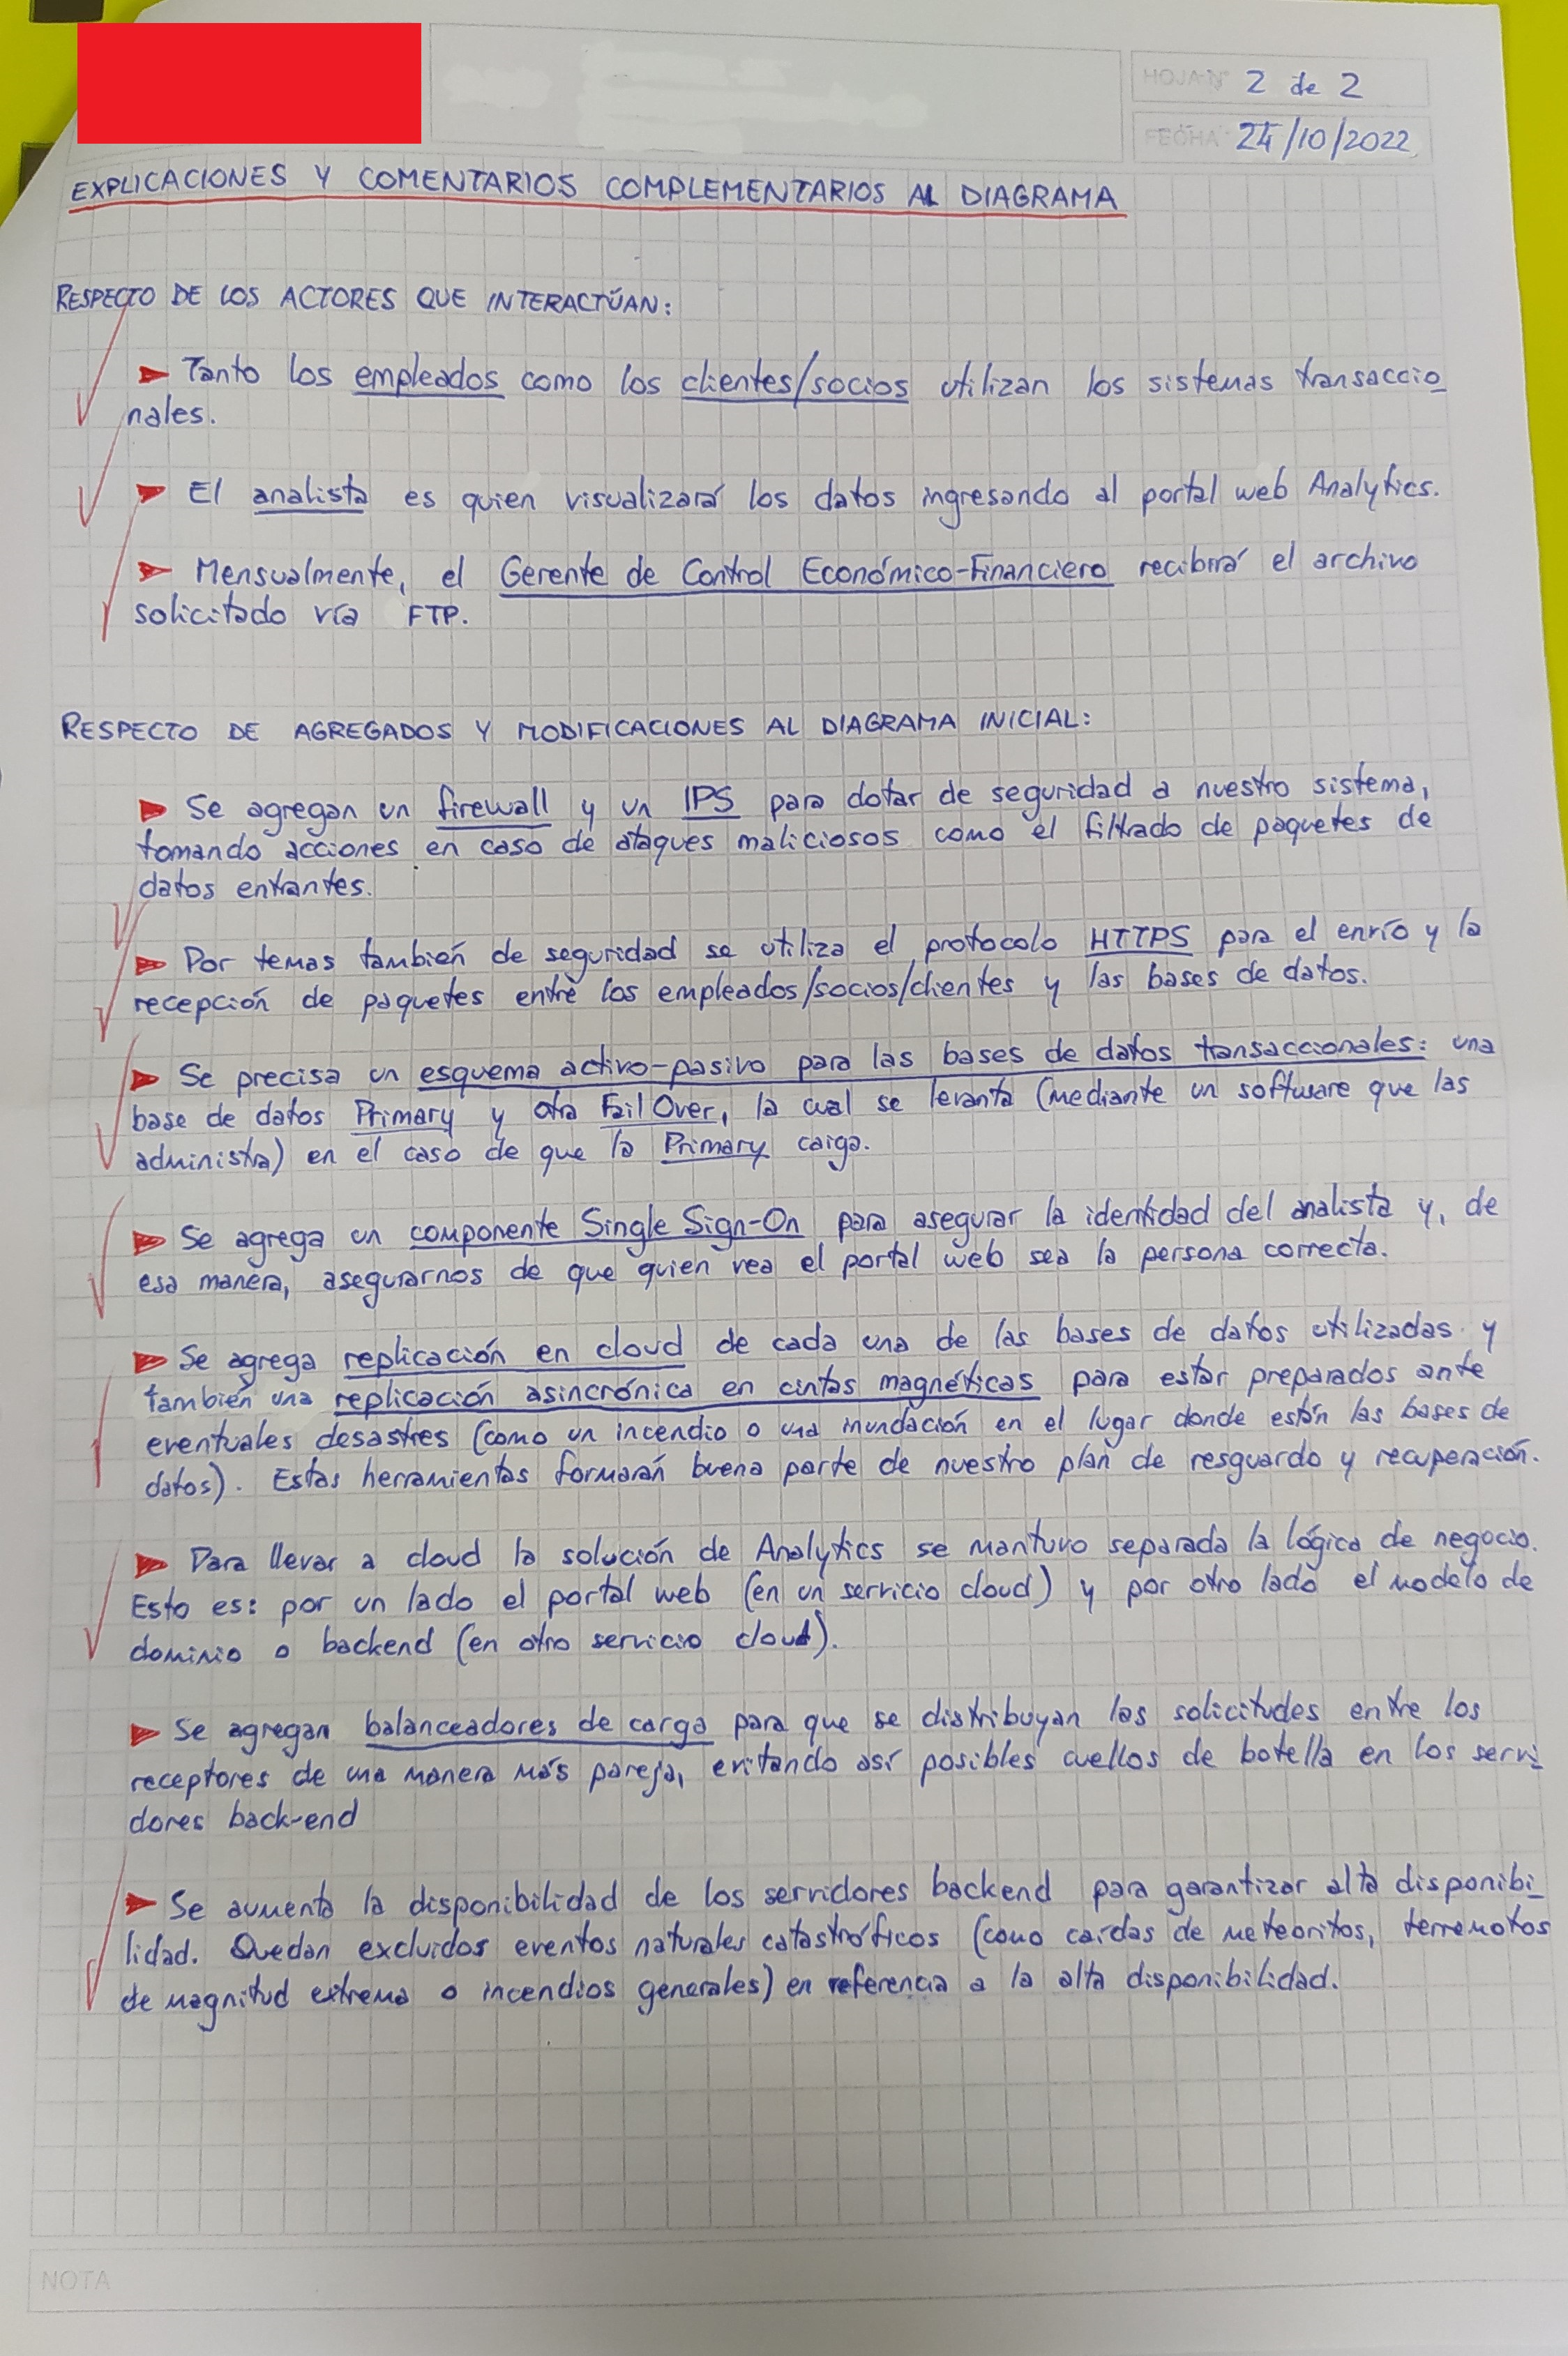 HOJA N° 2 de 2
FECHA 24/10/2022
EXPLICACIONES Y COMENTARIOS COMPLEMENTARIOS AL DIAGRAMA
RESPECTO DE LOS ACTORES QUE INTERACTÚAN:
Tanto los empleados como los clientes/socios utilizan los sistemas transaccio_
nales.
El analista es quien visualizará los datos ingresando al portal web Analytics.
Mensualmente, el Gerente de Control Económico-Financiero recibirá el archivo
solicitado vía FTP.
RESPECTO DE AGREGADOS Y MODIFICACIONES AL DIAGRAMA INICIAL:
Se agregan un firewall y un IPS para dotar de seguridad a nuestro sistema,
tomando acciones en caso de ataques maliciosos como el filtrado de paquetes de
datos entrantes.
Por temas también de seguridad se utiliza el protocolo HTTPS para el envío y la
recepción de paquetes entre los empleados/socios/clientes y las bases de datos.
Se precisa un esquema activo-pasivo para las bases de datos transaccionales: una
base de datos Primary y otra FailOver, la cual se levanta (mediante un software que las
administra) en el caso de que la Primary caiga.
Se agrega un componente Single Sign-On para asegurar la identidad del analista y, de
esa manera, asegurarnos de que quien vea el portal web sea la persona correcta.
Se agrega replicación en cloud de cada una de las bases de datos utilizadas y
también una replicación asincrónica en cintas magnéticas para estar preparados ante
eventuales desastres (como un incendio o una inundación en el lugar donde están las bases de
datos). Estas herramientas formarán buena parte de nuestro plan de resguardo y recuperación.
Para llevar a cloud la solución de Analytics se mantuvo separada la lógica de negocio.
Esto es: por un lado el portal web (en un servicio cloud) y por otro lado el modelo de
dominio o backend (en otro servicio cloud).
Se agregan balanceadores de carga para que se distribuyan las solicitudes entre los
receptores de una manera más pareja, evitando así posibles cuellos de botella en los servi_
dores back-end
Se aumenta la disponibilidad de los servidores backend para garantizar alta disponibi_
lidad. Quedan excluidos eventos naturales catastróficos (como caídas de meteoritos, terremotos
de magnitud extrema o incendios generales) en referencia a la alta disponibilidad.
NOTA